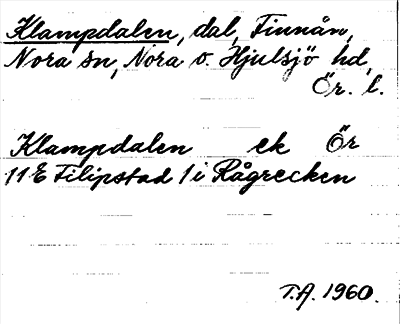 Klampdalen, dal, Finnån,
Nora sn, Nora o. Hjulsjö hd,
Ör. l.
Klampdalen ek Ör
11 E Filipstad 1 i Rågrecken
T.A. 1960.